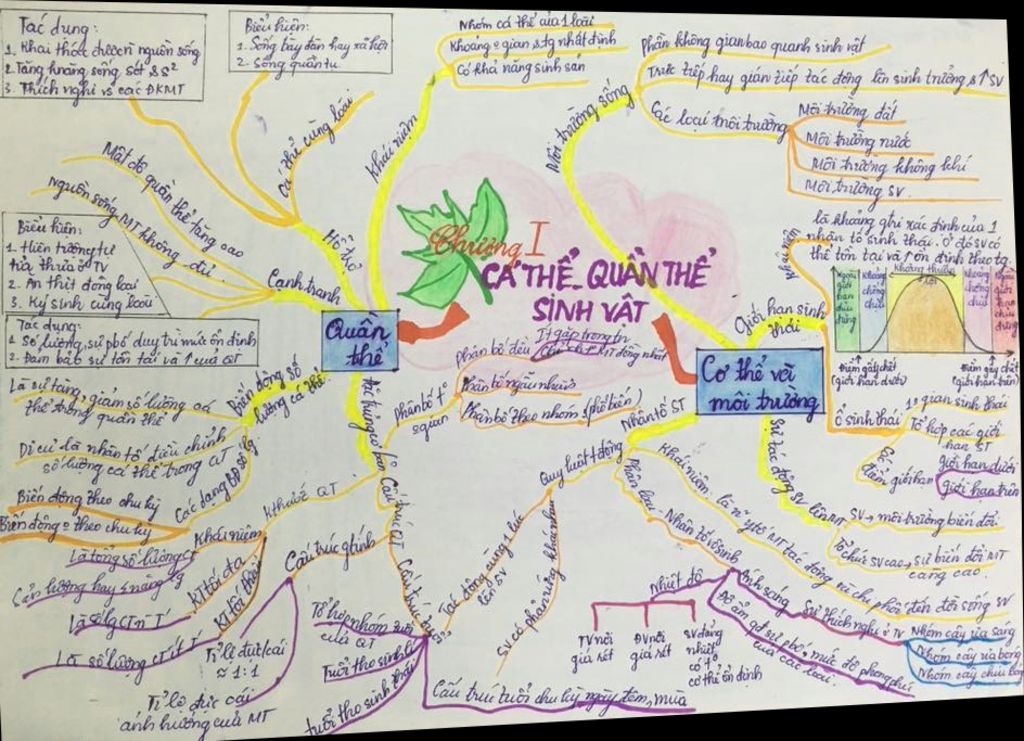 Tác dụng:
1. Khai thác được n nguồn sống
2. Tăng knăng sống sót & s²
3. Thích nghi vs các ĐKMT
Biểu hiện:
1. Sống bầy đàn hay xã hội
2. Sống quần tụ
Cá thể cùng loài
Hỗ trợ
Khái niệm
Nhóm cá thể của 1 loài
Khoảng o gian & tg nhất định
Có khả năng sinh sản
Mật độ quần thể tăng cao
Nguồn sống MT không đủ
Biểu hiện:
1. Hiện tượng tự
tỉa thưa ở TV
2. Ăn thịt đồng loại
3. Ký sinh cùng loài
Tác dụng:
1. Số lượng, sự pbố duy trì mức ổn định
2. Đảm bảo sự tồn tại và ↑ của QT
Cạnh tranh
Quần
thể
Chương I
CÁ THỂ - QUẦN THỂ
SINH VẬT
Môi trường sống
Phần không gian bao quanh sinh vật
Trực tiếp hay gián tiếp tác động lên sinh trưởng & ↑ SV
Các loại môi trường
Môi trường đất
Môi trường nước
Môi trường không khí
Môi trường SV
Giới hạn sinh
thái
Khái niệm
là khoảng ghi xác định của 1
nhân tố sinh thái. Ở đó SV có
thể tồn tại và ↑ ổn định theo tg
Ngoài
giới
hạn
chịu
đựng
Khoảng
chống
chịu
Khoảng thuận lợi
Khoảng
chống
chịu
Ngoài
giới
hạn
chịu
đựng
Điểm gây chết
(giới hạn dưới)
Điểm gây chết
(giới hạn trên)
Ổ sinh thái
1 o gian sinh thái
Tổ hợp các giới
hạn ST
Có
điểm giới hạn
Giới hạn dưới
Giới hạn trên
Cơ thể với
môi trường
Sự tác động SV lên MT
SV → môi trường biến đổi
Tổ chức SV cao → sự biến đổi MT
càng cao.
Nhân tố ST
Khái niệm: là n ytố MT tác động và chi phối đến đời sống SV
Phân loại
Nhân tố vô sinh
Nhiệt độ
TV nơi
giá rét
ĐV nơi
giá rét
SV đẳng
nhiệt
có t°
cơ thể ổn định
Ánh sáng
Sự thích nghi ở TV
Nhóm cây ưa sáng
Nhóm cây ưa bóng
Nhóm cây chịu bóng
Độ ẩm qđ sự pbố, mức độ phong phú
của các loài.
Quy luật tđộng
Tác động cùng 1 lúc
lên SV
SV có phản ứng khác nhau
Các đặc trưng cơ bản
Phân bố t
o gian
Phân bố đều
Ít gặp trong tn
Phân bố ngẫu nhiên
Phân bố theo nhóm (phổ biến)
Biến động số
lượng cá thể
Là sự tăng, giảm số lượng cá
thể trong quần thể
Di cư là nhân tố điều chỉnh
số lượng cá thể trong QT
Các dạng BĐ số lg
Biến động theo chu kỳ
Biến động o theo chu kỳ
Kthước QT
Khái niệm
Là tổng số lượng CT
Sản lượng hay ≤ năng lg
KT tối đa
Là số lg CT n T
KT tối thiểu
Là số lượng CT ít T
Cấu trúc QT
Cấu trúc gtính
Tỉ lệ đực/cái
≈ 1:1
Tỉ lệ đực cái
ảnh hưởng của MT
Cấu trúc tuổi
Tổ hợp nhóm tuổi
của QT
Tuổi thọ sinh lí
tuổi thọ sinh thái
Cấu trúc tuổi chu kỳ ngày đêm, mùa